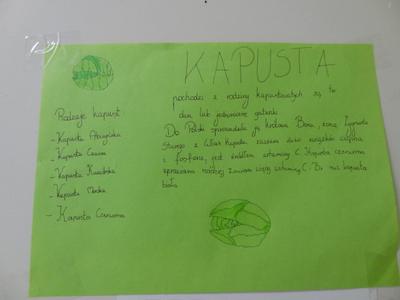 KAPUSTA
pochodzi z rodziny kapustowatych są to
dwu lub jednoroczne gatunki
Do Polski sprowadziła ją królowa Bona, żona Zygmunta
Starego z Włoch Kapusta zawiera dużo związków wapnia
z fosforem, jest źródłem witaminy C. Kapusta czerwona
zawiera więcej witaminy C. Niż kapusta
biała
Rodzaje kapust
- Kapusta
- Kapusta
- Kapusta
- Kapusta Włoska
- Kapusta Czerwona